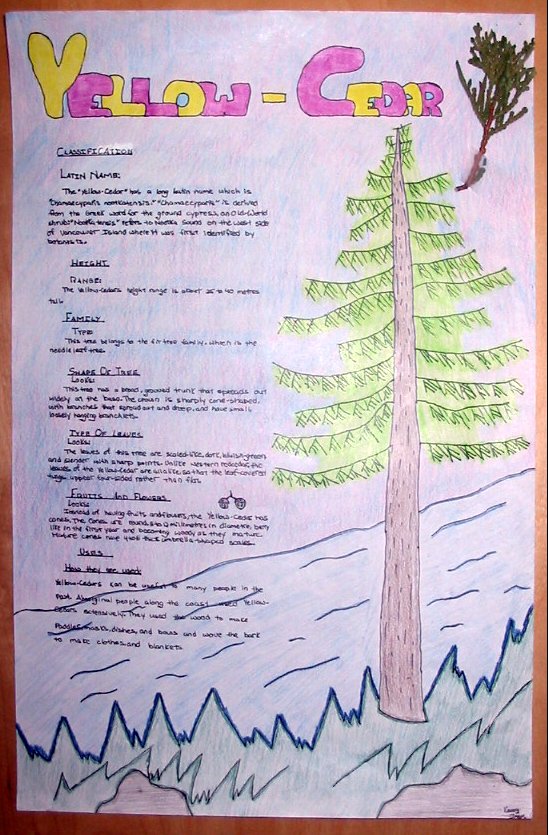 YELLOW - CEDAR
CLASSIFICATION
LATIN NAME:
The "Yellow-Cedar" has a long latin name which is
"Chamaecyparis nootkatensis." "Chamaecyparis" is derived
from the Greek word for the ground cypress, an Old-World
shrub. "Nootkatensis" refers to Nootka Sound on the west side
of Vancouver Island where it was first identified by
botanists.
HEIGHT
RANGE:
The Yellow-Cedars height range is about 25 to 40 metres
tall.
FAMILY
TYPE:
This tree belongs to the fir tree family, which is the
needle leaf tree.
SHAPE OF TREE
LOOKS:
This tree has a broad, grooved trunk that spreads out
widely at the base. The crown is sharply cone-shaped,
with branches that spread out and droop, and have small,
loosely hanging branchlets.
TYPE OF LEAVES
LOOKS:
The leaves of this tree are scaled-like, dark, bluish-green
and slender with sharp points. Unlike western redcedar, the
leaves of the Yellow-Cedar are all alike, so that the leaf-covered
twigs appear four-sided rather than flat.
FRUITS AND FLOWERS
LOOKS:
Instead of having fruits and flowers, the Yellow-Cedar has
cones. The cones are round, 6 to 12 millimetres in diametre, berry
like in the first year and becoming woody as they mature.
Mature cones have 4 to 6 thick umbrella-shaped scales.
USES
How they are used:
Yellow-Cedars can be useful to many people in the
past. Aboriginal people along the coast used Yellow-
Cedars extensively. They used the wood to make
Paddles, masks, dishes, and bows and wove the bark
to make clothes and blankets